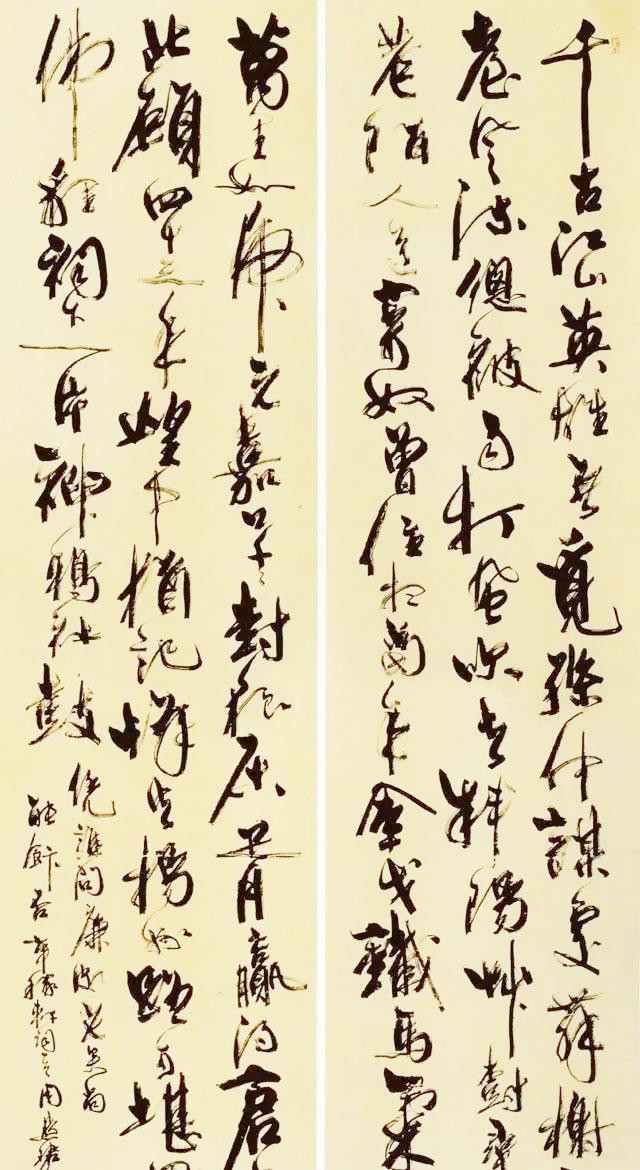 千古江山英雄無覓孫仲謀處舞榭
臺風流總被雨打風吹去斜陽草樹尋
巷陌人道寄奴曾住想當年金戈鐵馬氣
萬里如虎元嘉草草封狼居胥贏得倉
北顧四十三年望中猶記烽火揚州路可堪回
佛貍祠下一片神鴉社鼓
憑誰問廉頗老矣尚
能飯否辛稼軒詞